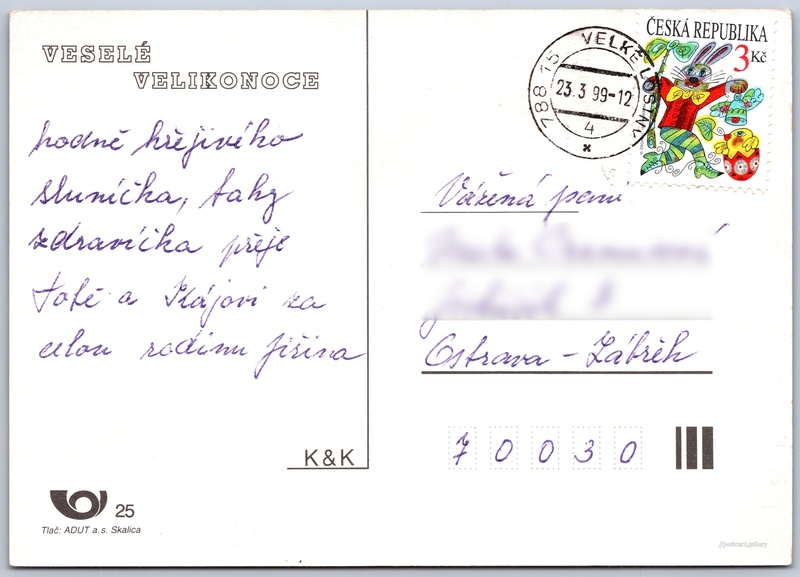 VESELÉ
VELIKONOCE
hodně hřejivého
sluníčka, taky
zdravíčka přeje
Tobě a Kájovi za
celou rodinu Jiřina
K&K
25
Tlač: ADUT a.s. Skalica
788 15 VELKÉ LOSINY
23.3.99-12
4
ČESKÁ REPUBLIKA
3 Kč
Vážená paní
Ostrava - Zábřeh
70030